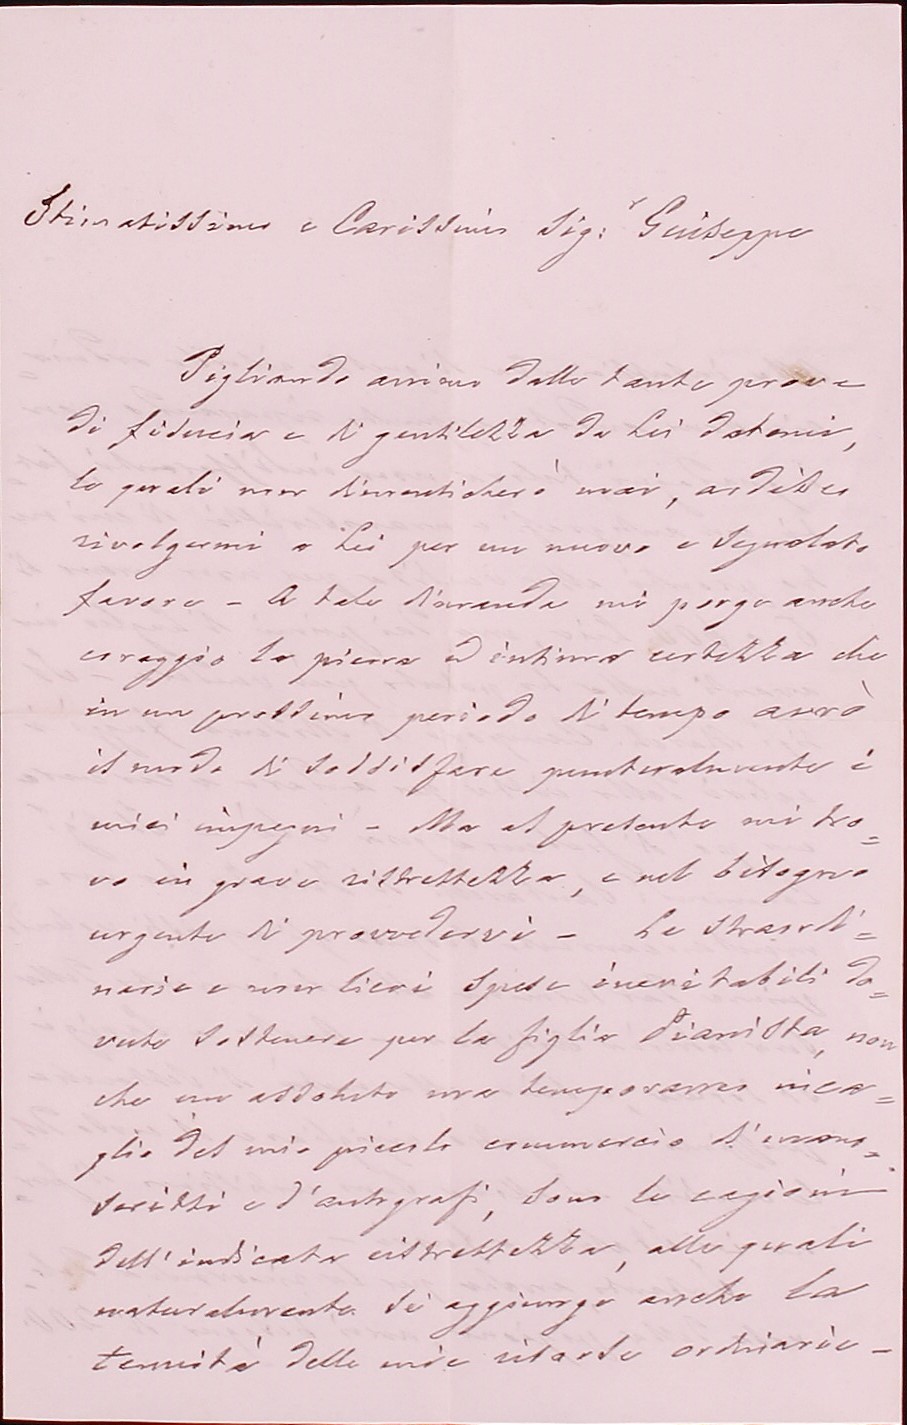 Stimatissimo e Carissimo Sig:r Giuseppe
Pigliando animo dalle tante prove
di fiducia e di gentilezza da Lei datemi,
le quali non dimenticherò mai, ardisco
rivolgermi a Lei per un nuovo e segnalato
favore - A tale dimanda mi porge anche
coraggio la piena ed intima certezza che
in un prossimo periodo di tempo avrò
il modo di soddisfare puntualmente i
miei impegni - Ma al presente mi tro=
vo in grave ristrettezza, e nel bisogno
urgente di provvedervi - Le straordi=
narie e non lievi spese inevitabili do=
vute sostenere per la figlia Pianista, non
che un assoluto ma temporaneo inca=
glio del mio piccolo commercio di mano=
scritti e d'autografi, sono le cagioni
dell'indicata ristrettezza, alle quali
naturalmente si aggiunge anche la
tenuità delle mie risorse ordinarie -